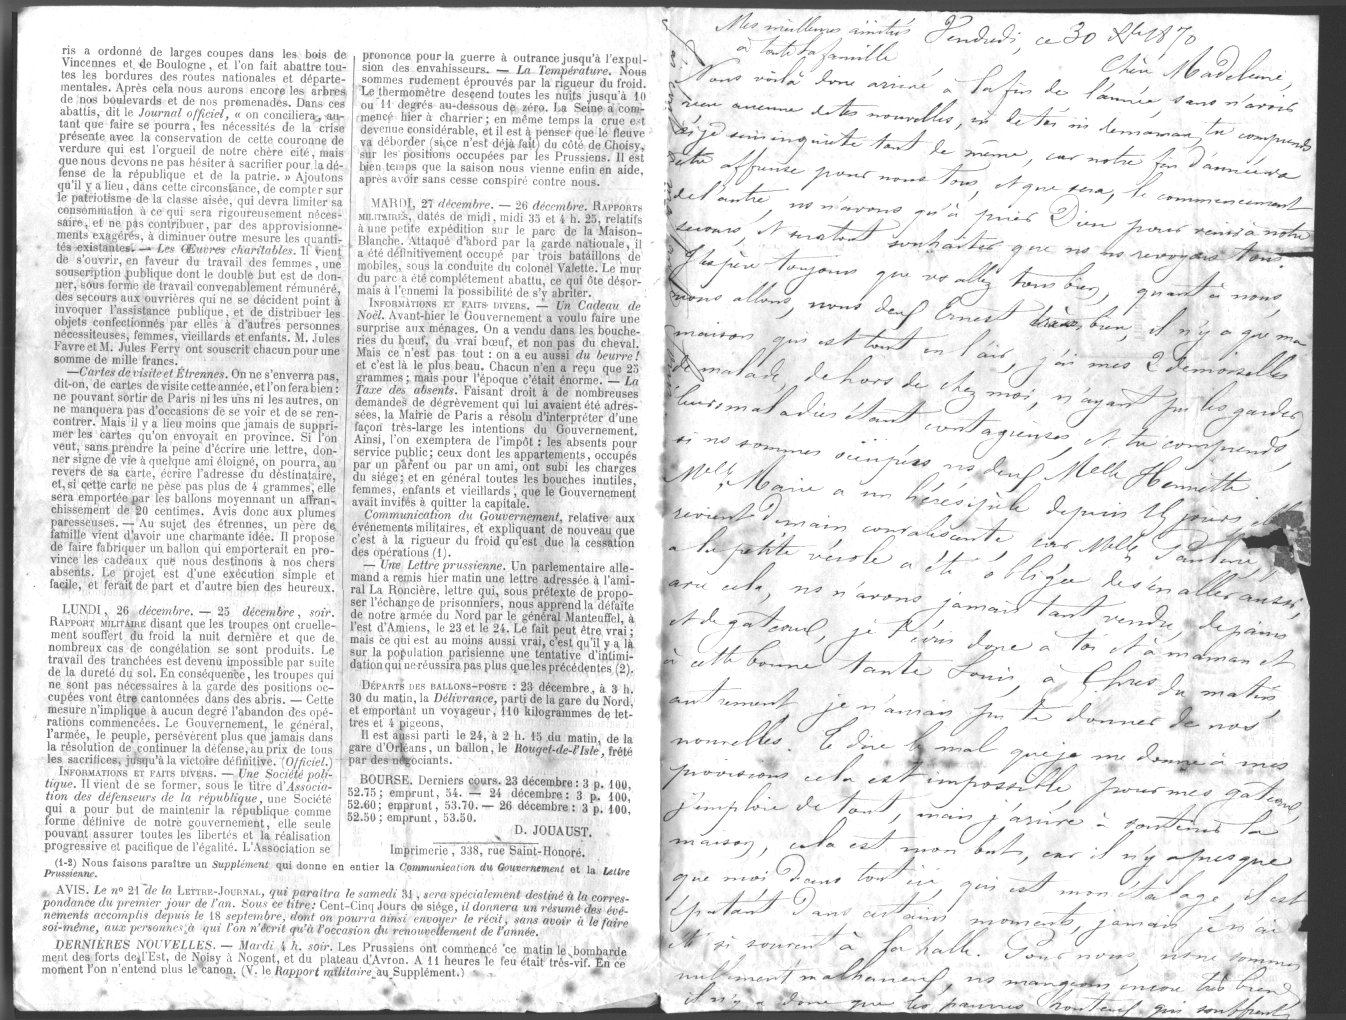 ris a ordonné de larges coupes dans les bois de
Vincennes et de Boulogne, et l'on fait abattre tou-
tes les bordures des routes nationales et départe-
mentales. Après cela nous aurons encore les arbres
de nos boulevards et de nos promenades. Dans ces
abattis, dit le Journal officiel, « on conciliera, au-
tant que faire se pourra, les nécessités de la crise
présente avec la conservation de cette couronne de
verdure qui est l'orgueil de notre chère cité, mais
que nous devons ne pas hésiter à sacrifier pour la dé-
fense de la république et de la patrie. » Ajoutons
qu'il y a lieu, dans cette circonstance, de compter sur
le patriotisme de la classe aisée, qui devra limiter sa
consommation à ce qui sera rigoureusement néces-
saire, et ne pas contribuer, par des approvisionne-
ments exagérés, à diminuer outre mesure les quanti-
tés existantes. — Les Œuvres charitables. Il vient
de s'ouvrir, en faveur du travail des femmes, une
souscription publique dont le double but est de don-
ner, sous forme de travail convenablement rémunéré,
des secours aux ouvrières qui ne se décident point à
invoquer l'assistance publique, et de distribuer les
objets confectionnés par elles à d'autres personnes
nécessiteuses, femmes, vieillards et enfants. M. Jules
Favre et M. Jules Ferry ont souscrit chacun pour une
somme de mille francs.
—Cartes de visite et Étrennes. On ne s'enverra pas,
dit-on, de cartes de visite cette année, et l'on fera bien :
ne pouvant sortir de Paris ni les uns ni les autres, on
ne manquera pas d'occasions de se voir et de se ren-
contrer. Mais il y a lieu moins que jamais de suppri-
mer les cartes qu'on envoyait en province. Si l'on
veut, sans prendre la peine d'écrire une lettre, don-
ner signe de vie à quelque ami éloigné, on pourra, au
revers de sa carte, écrire l'adresse du destinataire,
et, si cette carte ne pèse pas plus de 4 grammes, elle
sera emportée par les ballons moyennant un affran-
chissement de 20 centimes. Avis donc aux plumes
paresseuses. — Au sujet des étrennes, un père de
famille vient d'avoir une charmante idée. Il propose
de faire fabriquer un ballon qui emporterait en pro-
vince les cadeaux que nous destinons à nos chers
absents. Le projet est d'une exécution simple et
facile, et ferait de part et d'autre bien des heureux.
LUNDI, 26 décembre. — 25 décembre, soir.
RAPPORT MILITAIRE disant que les troupes ont cruelle-
ment souffert du froid la nuit dernière et que de
nombreux cas de congélation se sont produits. Le
travail des tranchées est devenu impossible par suite
de la dureté du sol. En conséquence, les troupes qui
ne sont pas nécessaires à la garde des positions oc-
cupées vont être cantonnées dans des abris. — Cette
mesure n'implique à aucun degré l'abandon des opé-
rations commencées. Le Gouvernement, le général,
l'armée, le peuple, persévèrent plus que jamais dans
la résolution de continuer la défense, au prix de tous
les sacrifices, jusqu'à la victoire définitive. (Officiel.)
INFORMATIONS ET FAITS DIVERS. — Une Société poli-
tique. Il vient de se former, sous le titre d'Associa-
tion des défenseurs de la république, une Société
qui a pour but de maintenir la république comme
forme définive de notre gouvernement, elle seule
pouvant assurer toutes les libertés et la réalisation
progressive et pacifique de l'égalité. L'Association se
prononce pour la guerre à outrance jusqu'à l'expul-
sion des envahisseurs. — La Température. Nous
sommes rudement éprouvés par la rigueur du froid.
Le thermomètre descend toutes les nuits jusqu'à 10
ou 11 degrés au-dessous de zéro. La Seine a com-
mencé hier à charrier ; en même temps la crue est
devenue considérable, et il est à penser que le fleuve
va déborder (si ce n'est déjà fait) du côté de Choisy,
sur les positions occupées par les Prussiens. Il est
bien temps que la saison nous vienne enfin en aide,
après avoir sans cesse conspiré contre nous.
MARDI, 27 décembre. — 26 décembre. RAPPORTS
MILITAIRES, datés de midi, midi 35 et 4 h. 25, relatifs
à une petite expédition sur le parc de la Maison-
Blanche. Attaqué d'abord par la garde nationale, il
a été définitivement occupé par trois bataillons de
mobiles, sous la conduite du colonel Valette. Le mur
du parc a été complétement abattu, ce qui ôte désor-
mais à l'ennemi la possibilité de s'y abriter.
INFORMATIONS ET FAITS DIVERS. — Un Cadeau de
Noël. Avant-hier le Gouvernement a voulu faire une
surprise aux ménages. On a vendu dans les bouche-
ries du bœuf, du vrai bœuf, et non pas du cheval.
Mais ce n'est pas tout : on a eu aussi du beurre !
et c'est là le plus beau. Chacun n'en a reçu que 25
grammes ; mais pour l'époque c'était énorme. — La
Taxe des absents. Faisant droit à de nombreuses
demandes de dégrèvement qui lui avaient été adres-
sées, la Mairie de Paris a résolu d'interpréter d'une
façon très-large les intentions du Gouvernement.
Ainsi, l'on exemptera de l'impôt : les absents pour
service public ; ceux dont les appartements, occupés
par un parent ou par un ami, ont subi les charges
du siége ; et en général toutes les bouches inutiles,
femmes, enfants et vieillards, que le Gouvernement
avait invités à quitter la capitale.
Communication du Gouvernement, relative aux
événements militaires, et expliquant de nouveau que
c'est à la rigueur du froid qu'est due la cessation
des opérations (1).
— Une Lettre prussienne. Un parlementaire alle-
mand a remis hier matin une lettre adressée à l'ami-
ral La Roncière, lettre qui, sous prétexte de propo-
ser l'échange de prisonniers, nous apprend la défaite
de notre armée du Nord par le général Manteuffel, à
l'est d'Amiens, le 23 et le 24. Le fait peut être vrai ;
mais ce qui est au moins aussi vrai, c'est qu'il y a là
sur la population parisienne une tentative d'intimi-
dation qui ne réussira pas plus que les précédentes (2).
DÉPARTS DES BALLONS-POSTE : 23 décembre, à 3 h.
30 du matin, la Délivrance, parti de la gare du Nord,
et emportant un voyageur, 110 kilogrammes de let-
tres et 4 pigeons.
Il est aussi parti le 24, à 2 h. 15 du matin, de la
gare d'Orléans, un ballon, le Rouget-de-l'Isle, frété
par des négociants.
BOURSE. Derniers cours. 23 décembre : 3 p. 100,
52.75 ; emprunt, 54. — 24 décembre : 3 p. 100,
52.60 ; emprunt, 53.70. — 26 décembre : 3 p. 100,
52.50 ; emprunt, 53.50.
D. JOUAUST.
Imprimerie, 338, rue Saint-Honoré.
(1-2) Nous faisons paraître un Supplément qui donne en entier la Communication du Gouvernement et la Lettre
Prussienne.
AVIS. Le nº 21 de la LETTRE-JOURNAL, qui paraîtra le samedi 31, sera spécialement destiné à la corres-
pondance du premier jour de l'an. Sous ce titre : Cent-Cinq Jours de siége, il donnera un résumé des évé-
nements accomplis depuis le 18 septembre, dont on pourra ainsi envoyer le récit, sans avoir à le faire
soi-même, aux personnes à qui l'on n'écrit qu'à l'occasion du renouvellement de l'année.
DERNIÈRES NOUVELLES. — Mardi 4 h. soir. Les Prussiens ont commencé ce matin le bombarde
ment des forts de l'Est, de Noisy à Nogent, et du plateau d'Avron. A 11 heures le feu était très-vif. En ce
moment l'on n'entend plus le canon. (V. le Rapport militaire au Supplément.)
Mes meilleures amitiés
à toute ta famille
Vendredi, ce 30 Xbre 1870
Chère Madeleine,
Nous voilà donc arrivé à la fin de l'année sans n'avoir
reçu aucune de tes nouvelles, ni de toi ni de maman, tu comprends
si je suis inquiète tout de même, car notre fin d'année va
être affreuse pour nous tous, et que sera le commencement
de l'autre ns n'avons qu'à prier Dieu pour venir à notre
secours, et surtout souhaiter que ns ns revoyons tous.
J'espère toujours que vs allez tous bien, quant à nous
nous allons, nous deux Ernest très bien, il n'y a que ma
maison qui est tout en l'air, j'ai mes 2 demoiselles
de malade, dehors de chez moi, n'ayant pu les garder
leurs maladies étant contagieuses, et tu comprends,
si ns sommes ns deux Melle Henriette
Melle Marie a un depuis 15 jours, elle
revient demain convalescente, car Melle
a la petite vérole a été obligée de s'en aller aussi,
avec cela, ns n'avons jamais tant vendu de pains
et de gâteaux, je t'écris donc à toi et à maman et
à cette bonne tante Louis, à hres du matin,
autrement je n'aurais pu te donner de nos
nouvelles. Te dire le mal que je me donne à mes
provisions cela est impossible pour mes gâteaux,
j'emploie de tout, mais j'arrive à soutenir la
maison, cela est mon but, car il n'y a presque
que moi dans tout ici, qui est mon étalage, il est
épatant dans certains moments, jamais je n'ai
été si souvent à la halle. Pour nous, ns ne sommes
nullement malheureux, ns mangeons encore très bien
il n'y a donc que les pauvres qui souffrent